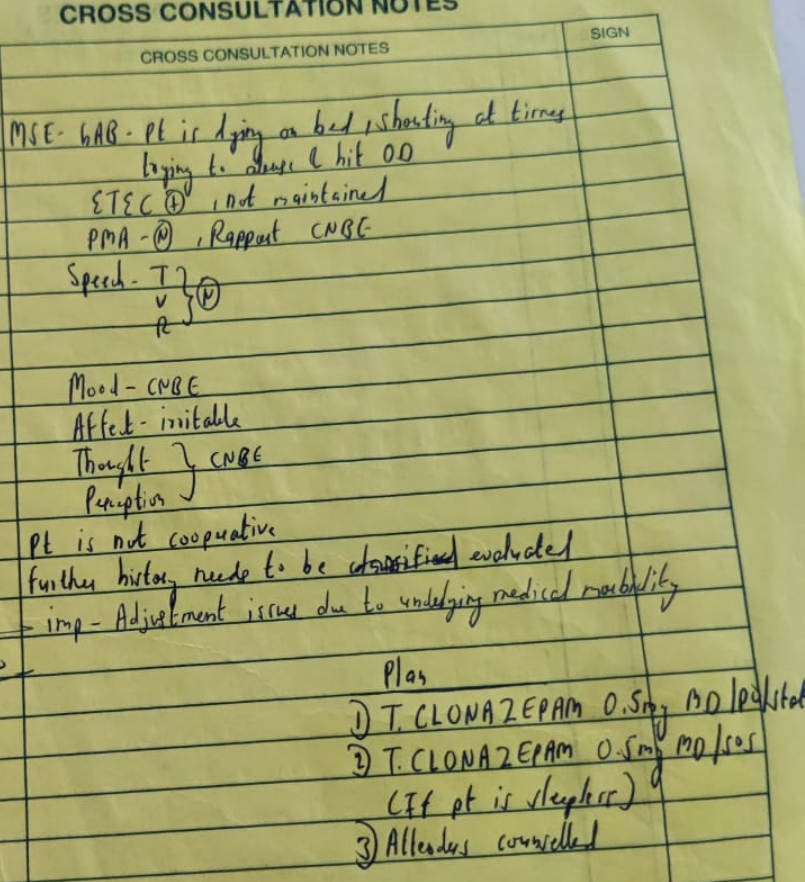 CROSS CONSULTATION NOTES
CROSS CONSULTATION NOTES
SIGN
MSE- GAB- Pt is lying on bed, shouting at times
trying to abuse & hit OD
ETEC ⊕, not maintained
PMA - Ⓝ, Rapport CNBE
Speech - T
V } Ⓝ
R
Mood - CNBE
Affect - irritable
Thought } CNBE
Perception
Pt is not cooperative
further history needs to be evaluated
imp - Adjustment issues due to underlying medical morbidity
Plan
1) T. CLONAZEPAM 0.5mg BD/po/stat
2) T. CLONAZEPAM 0.5mg /SOS
(If pt is sleepless)
3) Attenders counselled